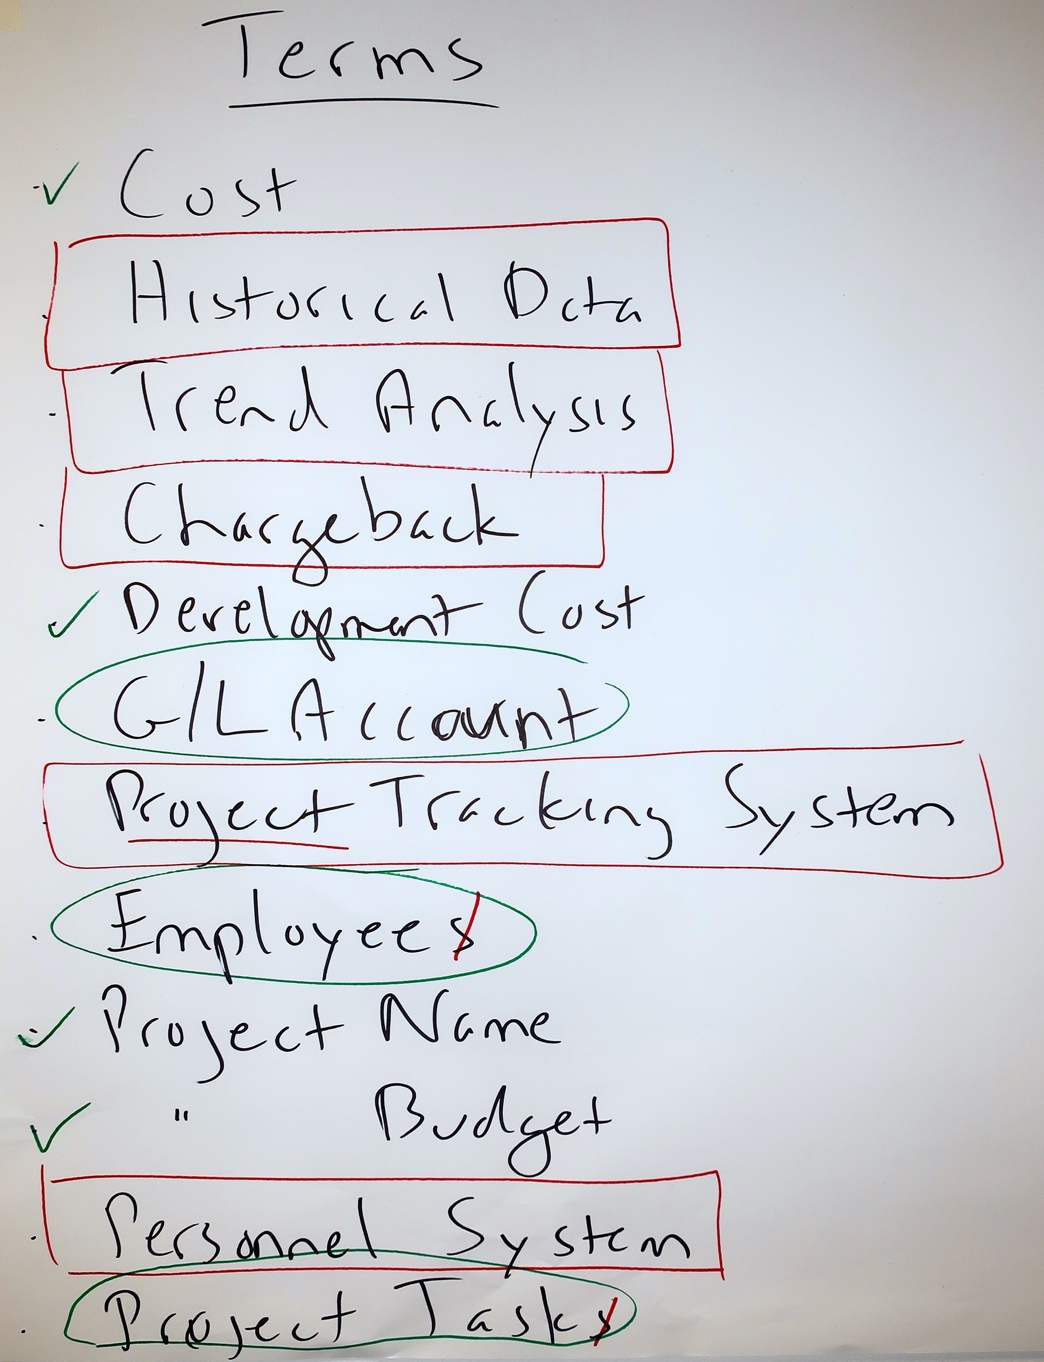 Terms
Cost
Historical Data
Trend Analysis
Chargeback
Development Cost
G/L Account
Project Tracking System
Employees
Project Name
" Budget
Personnel System
Project Tasks